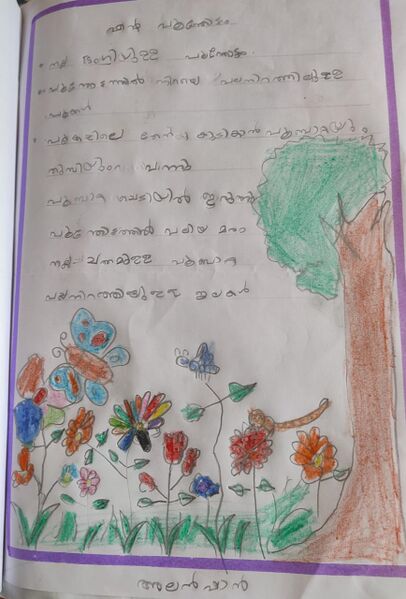 എൻ്റെ പൂന്തോട്ടം
നല്ല ഭംഗിയുള്ള പൂന്തോട്ടം.
പൂന്തോട്ടത്തിൽ നിറയെ പലനിറത്തിലുള്ള
പൂക്കൾ
പൂക്കളിലെ തേൻ കുടിക്കാൻ പൂമ്പാറ്റയും
തുമ്പിയും വന്നു
പൂമ്പാറ്റ ചെടിയിൽ ഇരുന്നു
പൂന്തോട്ടത്തിൽ വലിയ മരം
നല്ല ചന്തമുള്ള പൂമ്പാറ്റ
പലനിറത്തിലുള്ള ഇലകൾ
അലൻഷാൻ